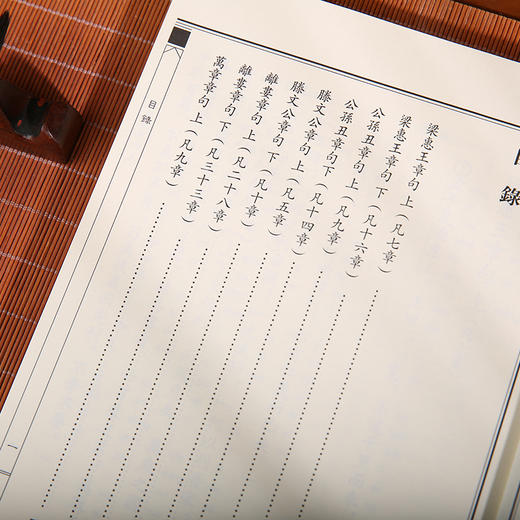 目錄
梁惠王章句 上（凡七章）
梁惠王章句 下（凡十六章）
公孫丑章句 上（凡九章）
公孫丑章句下（凡十四章）
滕文公章句 上（凡五章）
滕文公章句 下（凡十章）
離婁章句 上（凡二十八章）
離婁章句 下（凡三十三章）
萬章章句 上（凡九章）
目錄
一